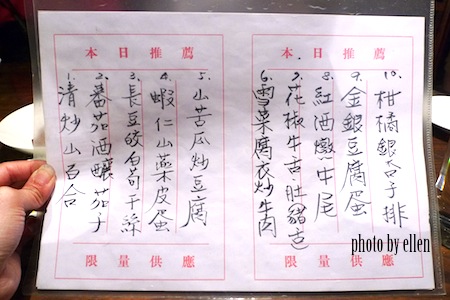 本日推薦
1. 清炒山百合
2. 蕃茄酒釀茄子
3. 長豆皎白荀干絲
4. 蝦仁山藥皮蛋
5. 山苦瓜炒豆腐
限量供應
本日推薦
6. 雪菜腐衣炒牛肉
7. 花椒牛舌肚(豬舌)
8. 紅酒燉牛尾
9. 金銀豆腐蛋
10. 柑橘銀杏子排
限量供應
photo by ellen